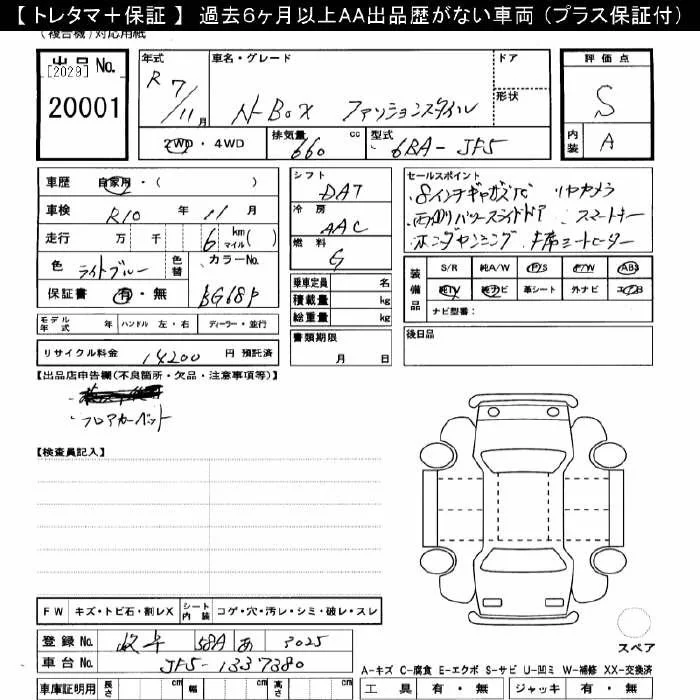 【 トレタマ＋保証 】 過去6ヶ月以上AA出品歴がない車両（プラス保証付）
(複合機)対応用紙
出品 No. [2029] 20001
年式 R 7/11月
車名・グレード N-Box ファッションスタイル
ドア
形状
評価点 S
内装 A
2WD・4WD
排気量 660 cc
型式 6BA-JF5
車歴 自家用・( )
車検 R10 年 11 月
走行 万 千 6 km マイル ( )
色 ライトブルー 色替 カラーNo. BG68P
保証書 有・無
シフト DAT
冷房 AAC
燃料 G
乗車定員 名
積載量 kg
総重量 kg
書類期限 月 日
セールスポイント
・8インチギャザズTV リヤカメラ
・両側パワースライドドア スマートキー
・ホンダセンシング 前席シートヒーター
装備品 S/R 純A/W P/S P/W ABS
純TV 純ナビ 革シート 外ナビ エアB
ナビ型番：
後日品
モデル年式 年 ハンドル 左・右 ディーラー・並行
リサイクル料金 14200 円 預託済
【出品店申告欄(不良箇所・欠品・注意事項等)】
・フロアカーペット
【検査員記入】
FW キズ・トビ石・割レX シート内装 コゲ・穴・汚レ・シミ・破レ・スレ
登録 No. 岐阜 58A あ 3025
車台 No. JF5-1337380
車庫証明用 長さ cm 幅 cm 高さ cm
スペア
A-キズ C-腐食 E-エクボ S-サビ U-凹ミ W-補修 XX-交換済
工具 有・無 ジャッキ 有・無